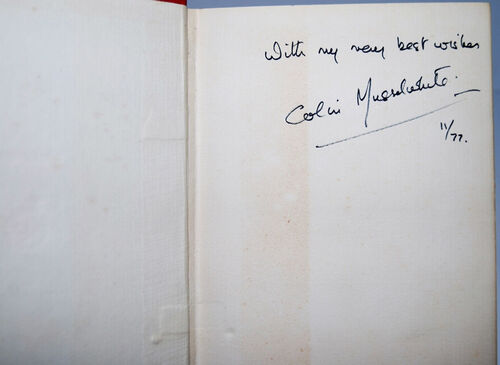 With my very best wishes
Colin
11/77.